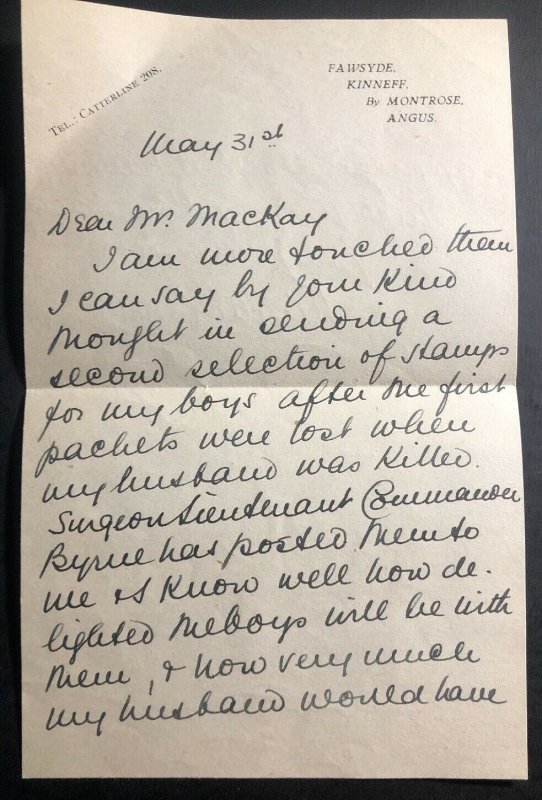 TEL.: CATTERLINE 208.
FAWSYDE,
KINNEFF,
By MONTROSE,
ANGUS.
May 31st
Dear Mr. MacKay
I am more touched than
I can say by your kind
thought in sending a
second selection of stamps
for my boys after the first
packets were lost when
my husband was killed.
Surgeon Lieutenant Commander
Byrne has posted them to
me & I know well how de-
lighted the boys will be with
them, & how very much
my husband would have